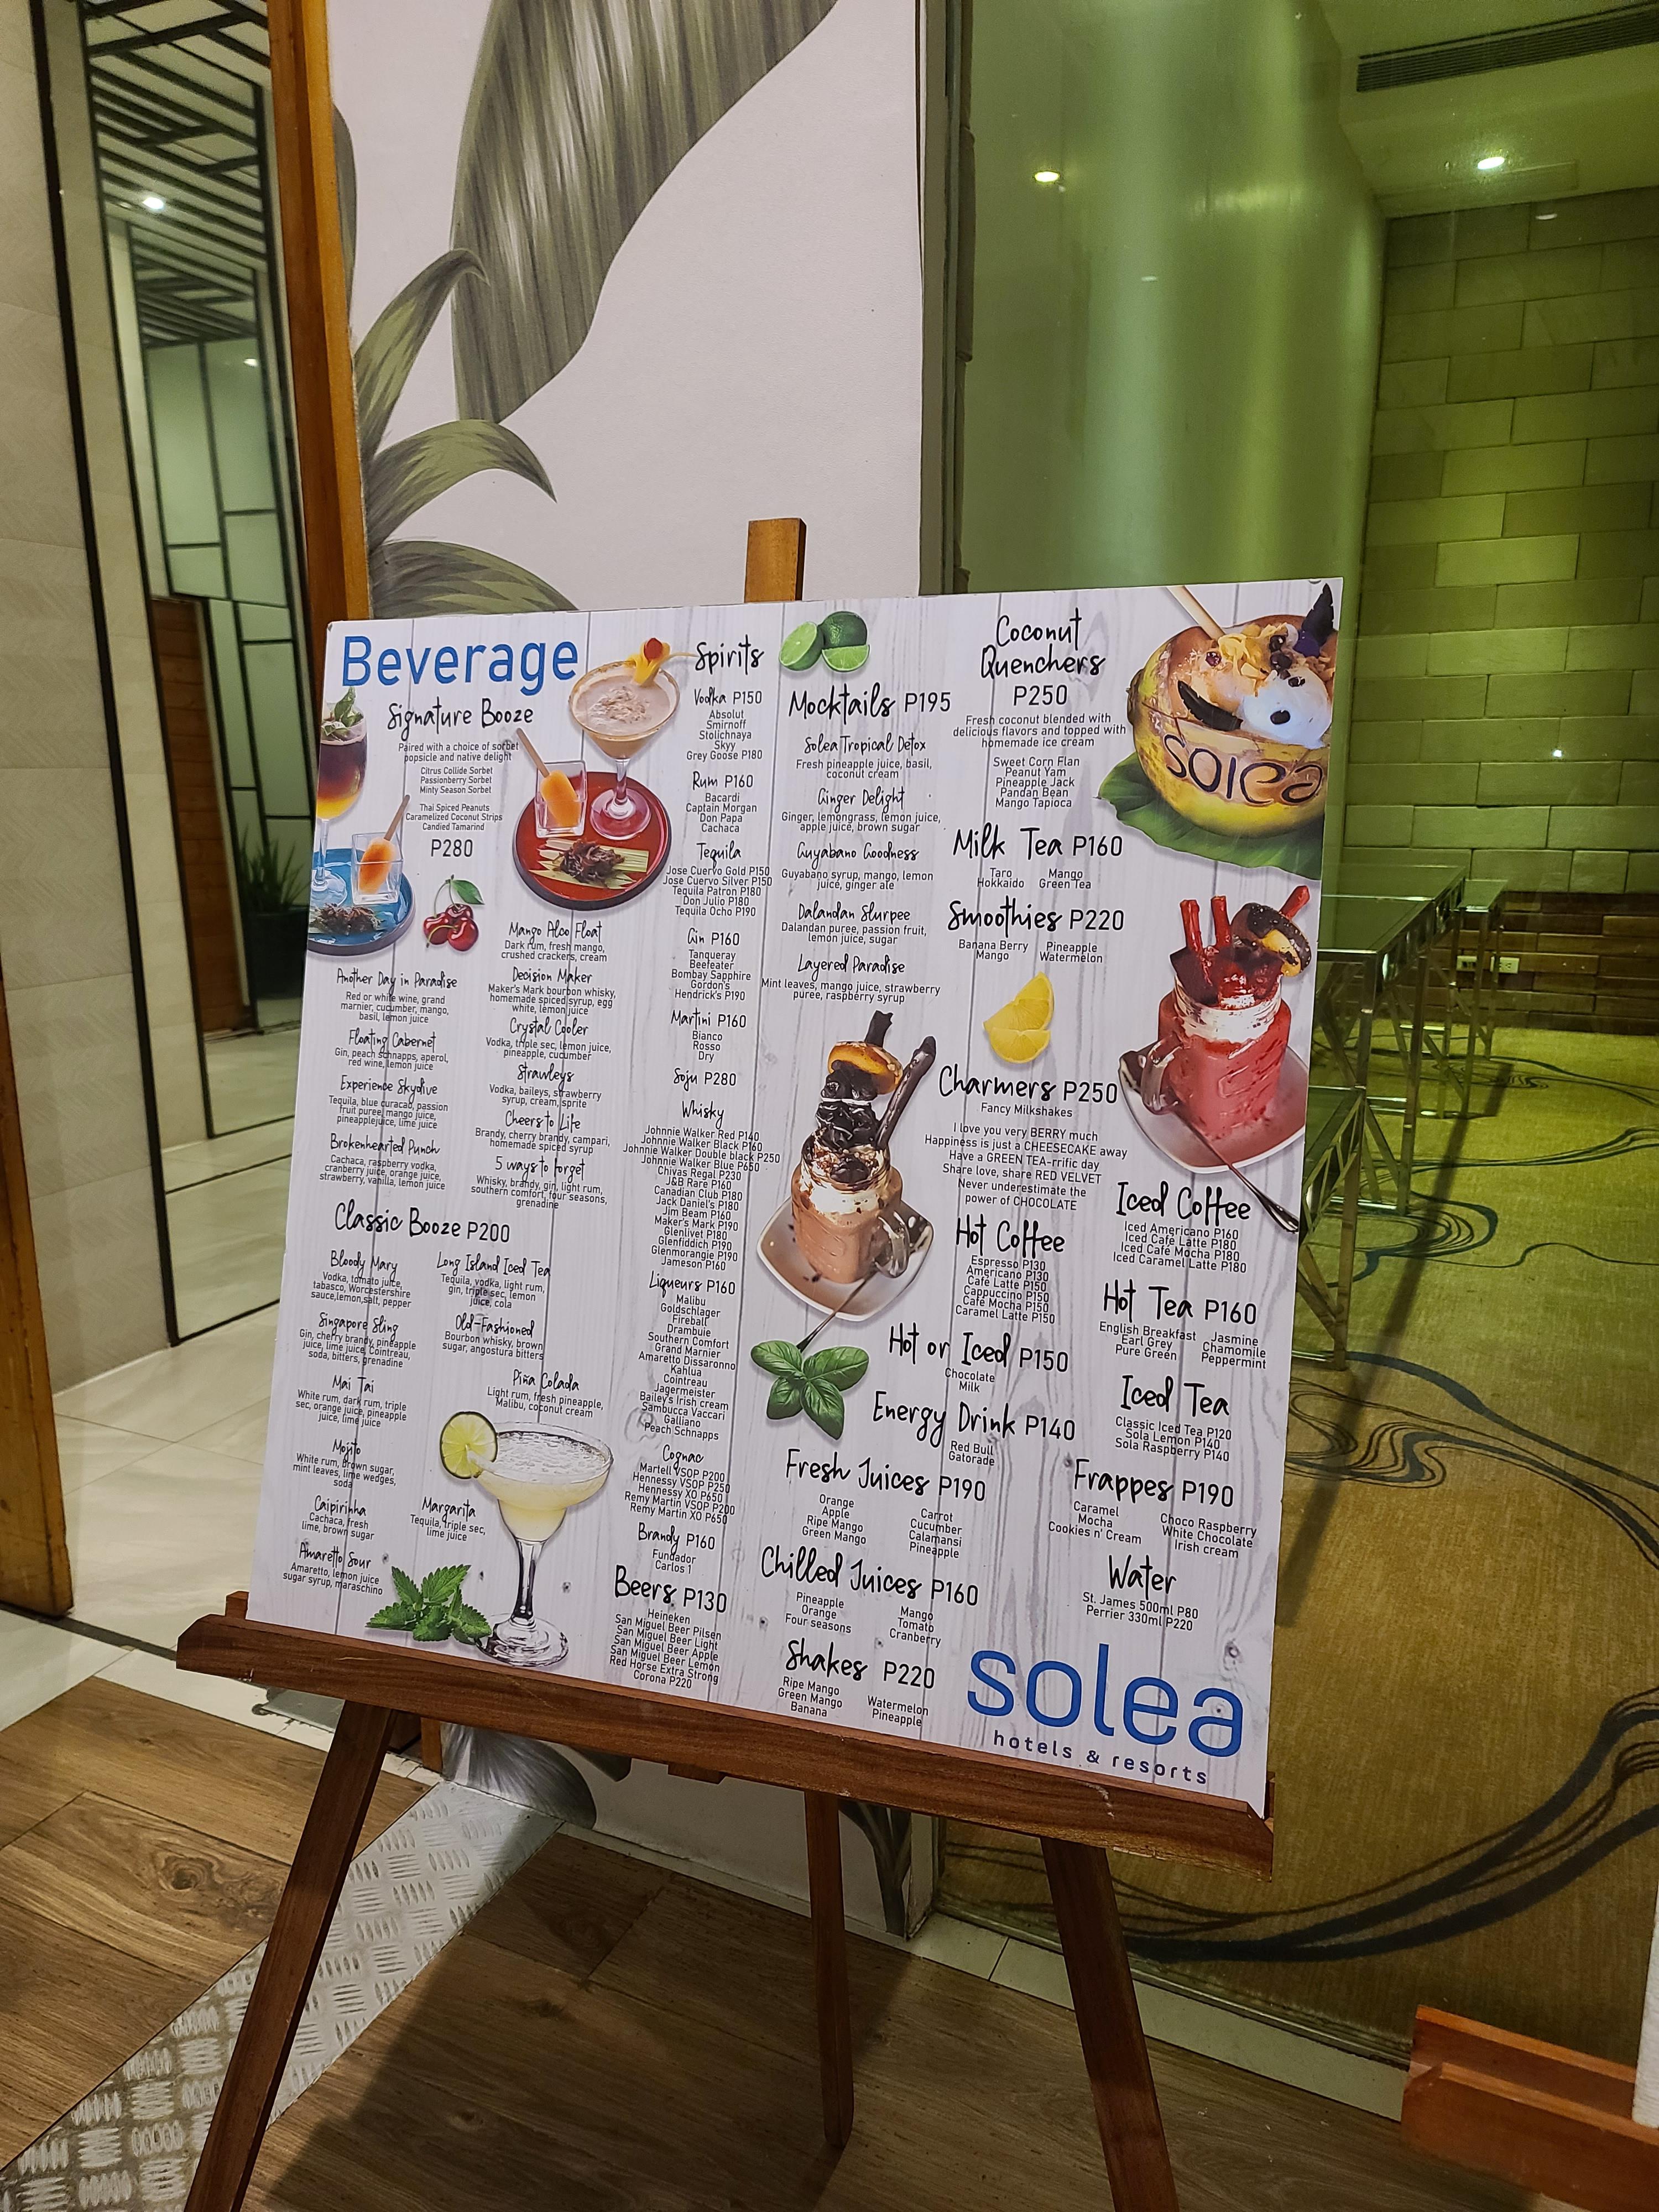 Beverage
Signature Booze
Paired with a choice of sorbet
popsicle and native delight
Citrus Collide Sorbet
Passionberry Sorbet
Minty Season Sorbet
Thai Spiced Peanuts
Caramelized Coconut Strips
Candied Tamarind
P280
Another Day in Paradise
Red or white wine, grand
marnier, cucumber, mango,
basil, lemon juice
Floating Cabernet
Gin, peach schnapps, aperol,
red wine, lemon juice
Experience Skydive
Tequila, blue curacao, passion
fruit puree, mango juice,
pineapplejuice, lime juice
Brokenhearted Punch
Cachaca, raspberry vodka,
cranberry juice, orange juice,
strawberry, vanilla, lemon juice
Mango Alco Float
Dark rum, fresh mango,
crushed crackers, cream
Decision Maker
Maker's Mark bourbon whisky,
homemade spiced syrup, egg
white, lemon juice
Crystal Cooler
Vodka, triple sec, lemon juice,
pineapple, cucumber
Strawleys
Vodka, baileys, strawberry
syrup, cream, sprite
Cheers to Life
Brandy, cherry brandy, campari,
homemade spiced syrup
5 ways to forget
Whisky, brandy, gin, light rum,
southern comfort, four seasons,
grenadine
Classic Booze P200
Bloody Mary
Vodka, tomato juice,
tabasco, Worcestershire
sauce,lemon,salt, pepper
Singapore Sling
Gin, cherry brandy, pineapple
juice, lime juice, Cointreau,
soda, bitters, grenadine
Mai Tai
White rum, dark rum, triple
sec, orange juice, pineapple
juice, lime juice
Mojito
White rum, brown sugar,
mint leaves, lime wedges,
soda
Caipirinha
Cachaca, fresh
lime, brown sugar
Amaretto Sour
Amaretto, lemon juice
sugar syrup, maraschino
Long Island Iced Tea
Tequila, vodka, light rum,
gin, triple sec, lemon
juice, cola
Old-Fashioned
Bourbon whisky, brown
sugar, angostura bitters
Piña Colada
Light rum, fresh pineapple,
Malibu, coconut cream
Margarita
Tequila, triple sec,
lime juice
Spirits
Vodka P150
Absolut
Smirnoff
Stolichnaya
Skyy
Grey Goose P180
Rum P160
Bacardi
Captain Morgan
Don Papa
Cachaca
Tequila
Jose Cuervo Gold P150
Jose Cuervo Silver P150
Tequila Patron P180
Don Julio P180
Tequila Ocho P190
Gin P160
Tanqueray
Beefeater
Bombay Sapphire
Gordon's
Hendrick's P190
Martini P160
Bianco
Rosso
Dry
Soju P280
Whisky
Johnnie Walker Red P140
Johnnie Walker Black P160
Johnnie Walker Double black P250
Johnnie Walker Blue P650
Chivas Regal P230
J&B Rare P160
Canadian Club P180
Jack Daniel's P180
Jim Beam P160
Maker's Mark P190
Glenlivet P180
Glenfiddich P190
Glenmorangie P190
Jameson P160
Liqueurs P160
Malibu
Goldschlager
Fireball
Drambuie
Southern Comfort
Grand Marnier
Amaretto Dissaronno
Kahlua
Cointreau
Jagermeister
Bailey's Irish cream
Sambucca Vaccari
Galliano
Peach Schnapps
Cognac
Martell VSOP P200
Hennessy VSOP P250
Hennessy XO P650
Remy Martin VSOP P200
Remy Martin XO P650
Brandy P160
Fundador
Carlos 1
Beers P130
Heineken
San Miguel Beer Pilsen
San Miguel Beer Light
San Miguel Beer Apple
San Miguel Beer Lemon
Red Horse Extra Strong
Corona P220
Mocktails P195
Solea Tropical Detox
Fresh pineapple juice, basil,
coconut cream
Ginger Delight
Ginger, lemongrass, lemon juice,
apple juice, brown sugar
Guyabano Goodness
Guyabano syrup, mango, lemon
juice, ginger ale
Dalandan Slurpee
Dalandan puree, passion fruit,
lemon juice, sugar
Layered Paradise
Mint leaves, mango juice, strawberry
puree, raspberry syrup
Coconut
Quenchers
P250
Fresh coconut blended with
delicious flavors and topped with
homemade ice cream
Sweet Corn Flan
Peanut Yam
Pineapple Jack
Pandan Bean
Mango Tapioca
solea
Milk Tea P160
Taro Mango
Hokkaido Green Tea
Smoothies P220
Banana Berry Pineapple
Mango Watermelon
Charmers P250
Fancy Milkshakes
I love you very BERRY much
Happiness is just a CHEESECAKE away
Have a GREEN TEA-rrific day
Share love, share RED VELVET
Never underestimate the
power of CHOCOLATE
Hot Coffee
Espresso P130
Americano P130
Café Latte P150
Cappuccino P150
Café Mocha P150
Caramel Latte P150
Iced Coffee
Iced Americano P160
Iced Café Latte P180
Iced Café Mocha P180
Iced Caramel Latte P180
Hot Tea P160
English Breakfast Jasmine
Earl Grey Chamomile
Pure Green Peppermint
Hot or Iced P150
Chocolate
Milk
Iced Tea
Classic Iced Tea P120
Sola Lemon P140
Sola Raspberry P140
Energy Drink P140
Red Bull
Gatorade
Fresh Juices P190
Orange Carrot
Apple Cucumber
Ripe Mango Calamansi
Green Mango Pineapple
Frappes P190
Caramel Choco Raspberry
Mocha White Chocolate
Cookies n' Cream Irish cream
Chilled Juices P160
Pineapple Mango
Orange Tomato
Four seasons Cranberry
Water
St. James 500ml P80
Perrier 330ml P220
Shakes P220
Ripe Mango Watermelon
Green Mango Pineapple
Banana
solea
hotels & resorts